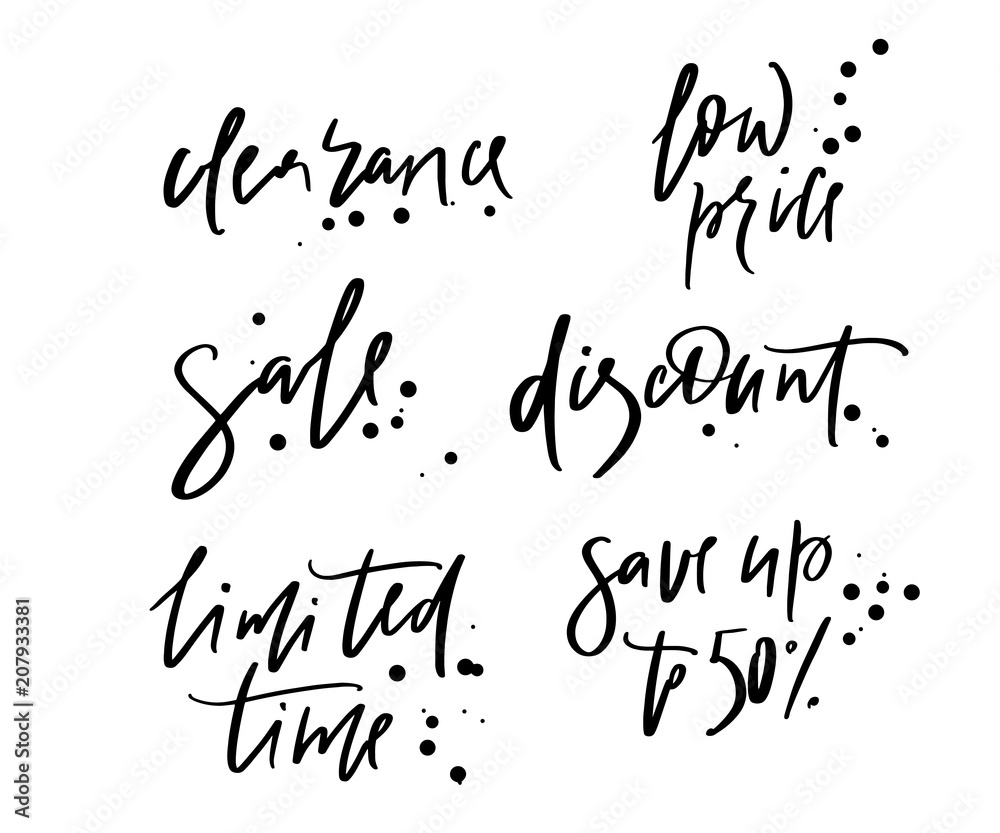 clearance
low
price
sale
discount
limited
time
save up
to 50%
Adobe Stock | #207933381